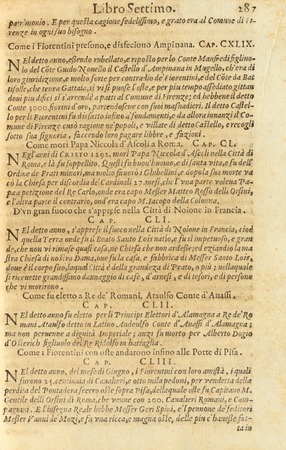 Libro Settimo. 287
patrimonio. E per questa cagione fedelissimo, e grato era al Comune di Fi-
renze in ogni suo bisogno.
Come i Fiorentini presono, e disfeciono Ampinana. CAP. CXLIX.
NEl detto anno, essendo rebellato, e riposto per lo Conte Manfredi figliuo-
lo del Cōte Guido Novello il Castello d'Ampinana in Mugello, ch'era di
loro giuridizione, e molto forte per contrario de' Fiorentini, e del Cōte da Bat
tifolle, che tenea Gattaia, si vi si puose l'oste, e per più tempo assediato gittan
dovi più difici si s'arrendè a patti al Comune di Firenze; ed hebbene il detto
Conte 3000. fiorini d'oro, partendosene con suoi masnadieri. Il detto Castel-
lo per li Fiorentini fu disfatto infino a' fondamenti, e da allora innanzi il Co-
mune di Firenze cusò ragione ne' popoli, e villate di detto Castello, e recogli
sotto sua signoria, faccendo loro pagare libbre, e fazioni.
Come morì Papa Niccola d'Ascoli a Roma. CAP. CL.
NEgl'anni di CRISTO 1292. morì Papa Niccola d'Ascoli nella Città di Ro-
ma, e là fu soppellito. Questi fu buono huomo, e di santa vita, e fu dell'
Ordine de Frati minori, ma molto favorò i Ghibellini; e dopo la sua morte va
cò la Chiesa per discordia de' Cardinali 27. mesi, che l'una parte volea Pa-
pa a petizione del Re Carlo, onde era capo Messer Matteo Rosso delli Orsini,
e l'altra parte il contrario, ond'era capo M. Iacopo della Colonna.
D'vn gran fuoco che s'apprese nella Città di Noione in Francia.
CAP. CLI.
NEl detto anno, s'apprese il fuoco nella Città di Noione in Francia, cioè
quella Terra onde fu il Beato Santo Loi natio, e fu sì impetuoso, e gran
de, che non vi rimase quasi casa, nè Chiesa che non ardesse; ed eziandio la no
stra Chiesa di nostra Dama, one fu la casa, e fabbrica di Messer Santo Loi,
doue è il corpo suo, la qual Città è della grandezza di Prato, o più; nella quale
si ricevette grandissimo dannaggio di case, d'arnesi, e di tesori, e di persone
che vi morirono.
Come fu eletto a Re de' Romani, Ataulfo Conte d'Anassi.
CAP. CLII.
NEl detto anno fu eletto per li Principi Elettori d'Alamagna a Re de' Ro
mani Ataulfo detto in Latino Audeulfo Conte d'Anassi d'Alamagna;
ma non pervenne a dignità Imperiale; anzi fu morto per Alberto Dogio
d'Osterich figliuolo del Re Ridolfo in battaglia.
Come i Fiorentini con oste andarono infino alle Porte di Pisa.
CAP. CLIII.
NEl detto anno, del mese di Giugno, i Fiorentini con loro amistà, i quali
furono 25. centinaia di Cavalieri, otto mila pedoni, per vendetta della
perdita del Pontadera fecero oste sopra Pisa, della quale oste fu Capitano M.
Gentile delli Orsini di Roma, che venne con 200. Cavalieri Romani, e Cam-
pagnani. E l'insegna Reale hebbe Messer Geri Spini, e l pennone de' feditori
Messer Vanni de Mozi, fu vna ricca, e magna oste, delle più c'havesse fat-
ta in